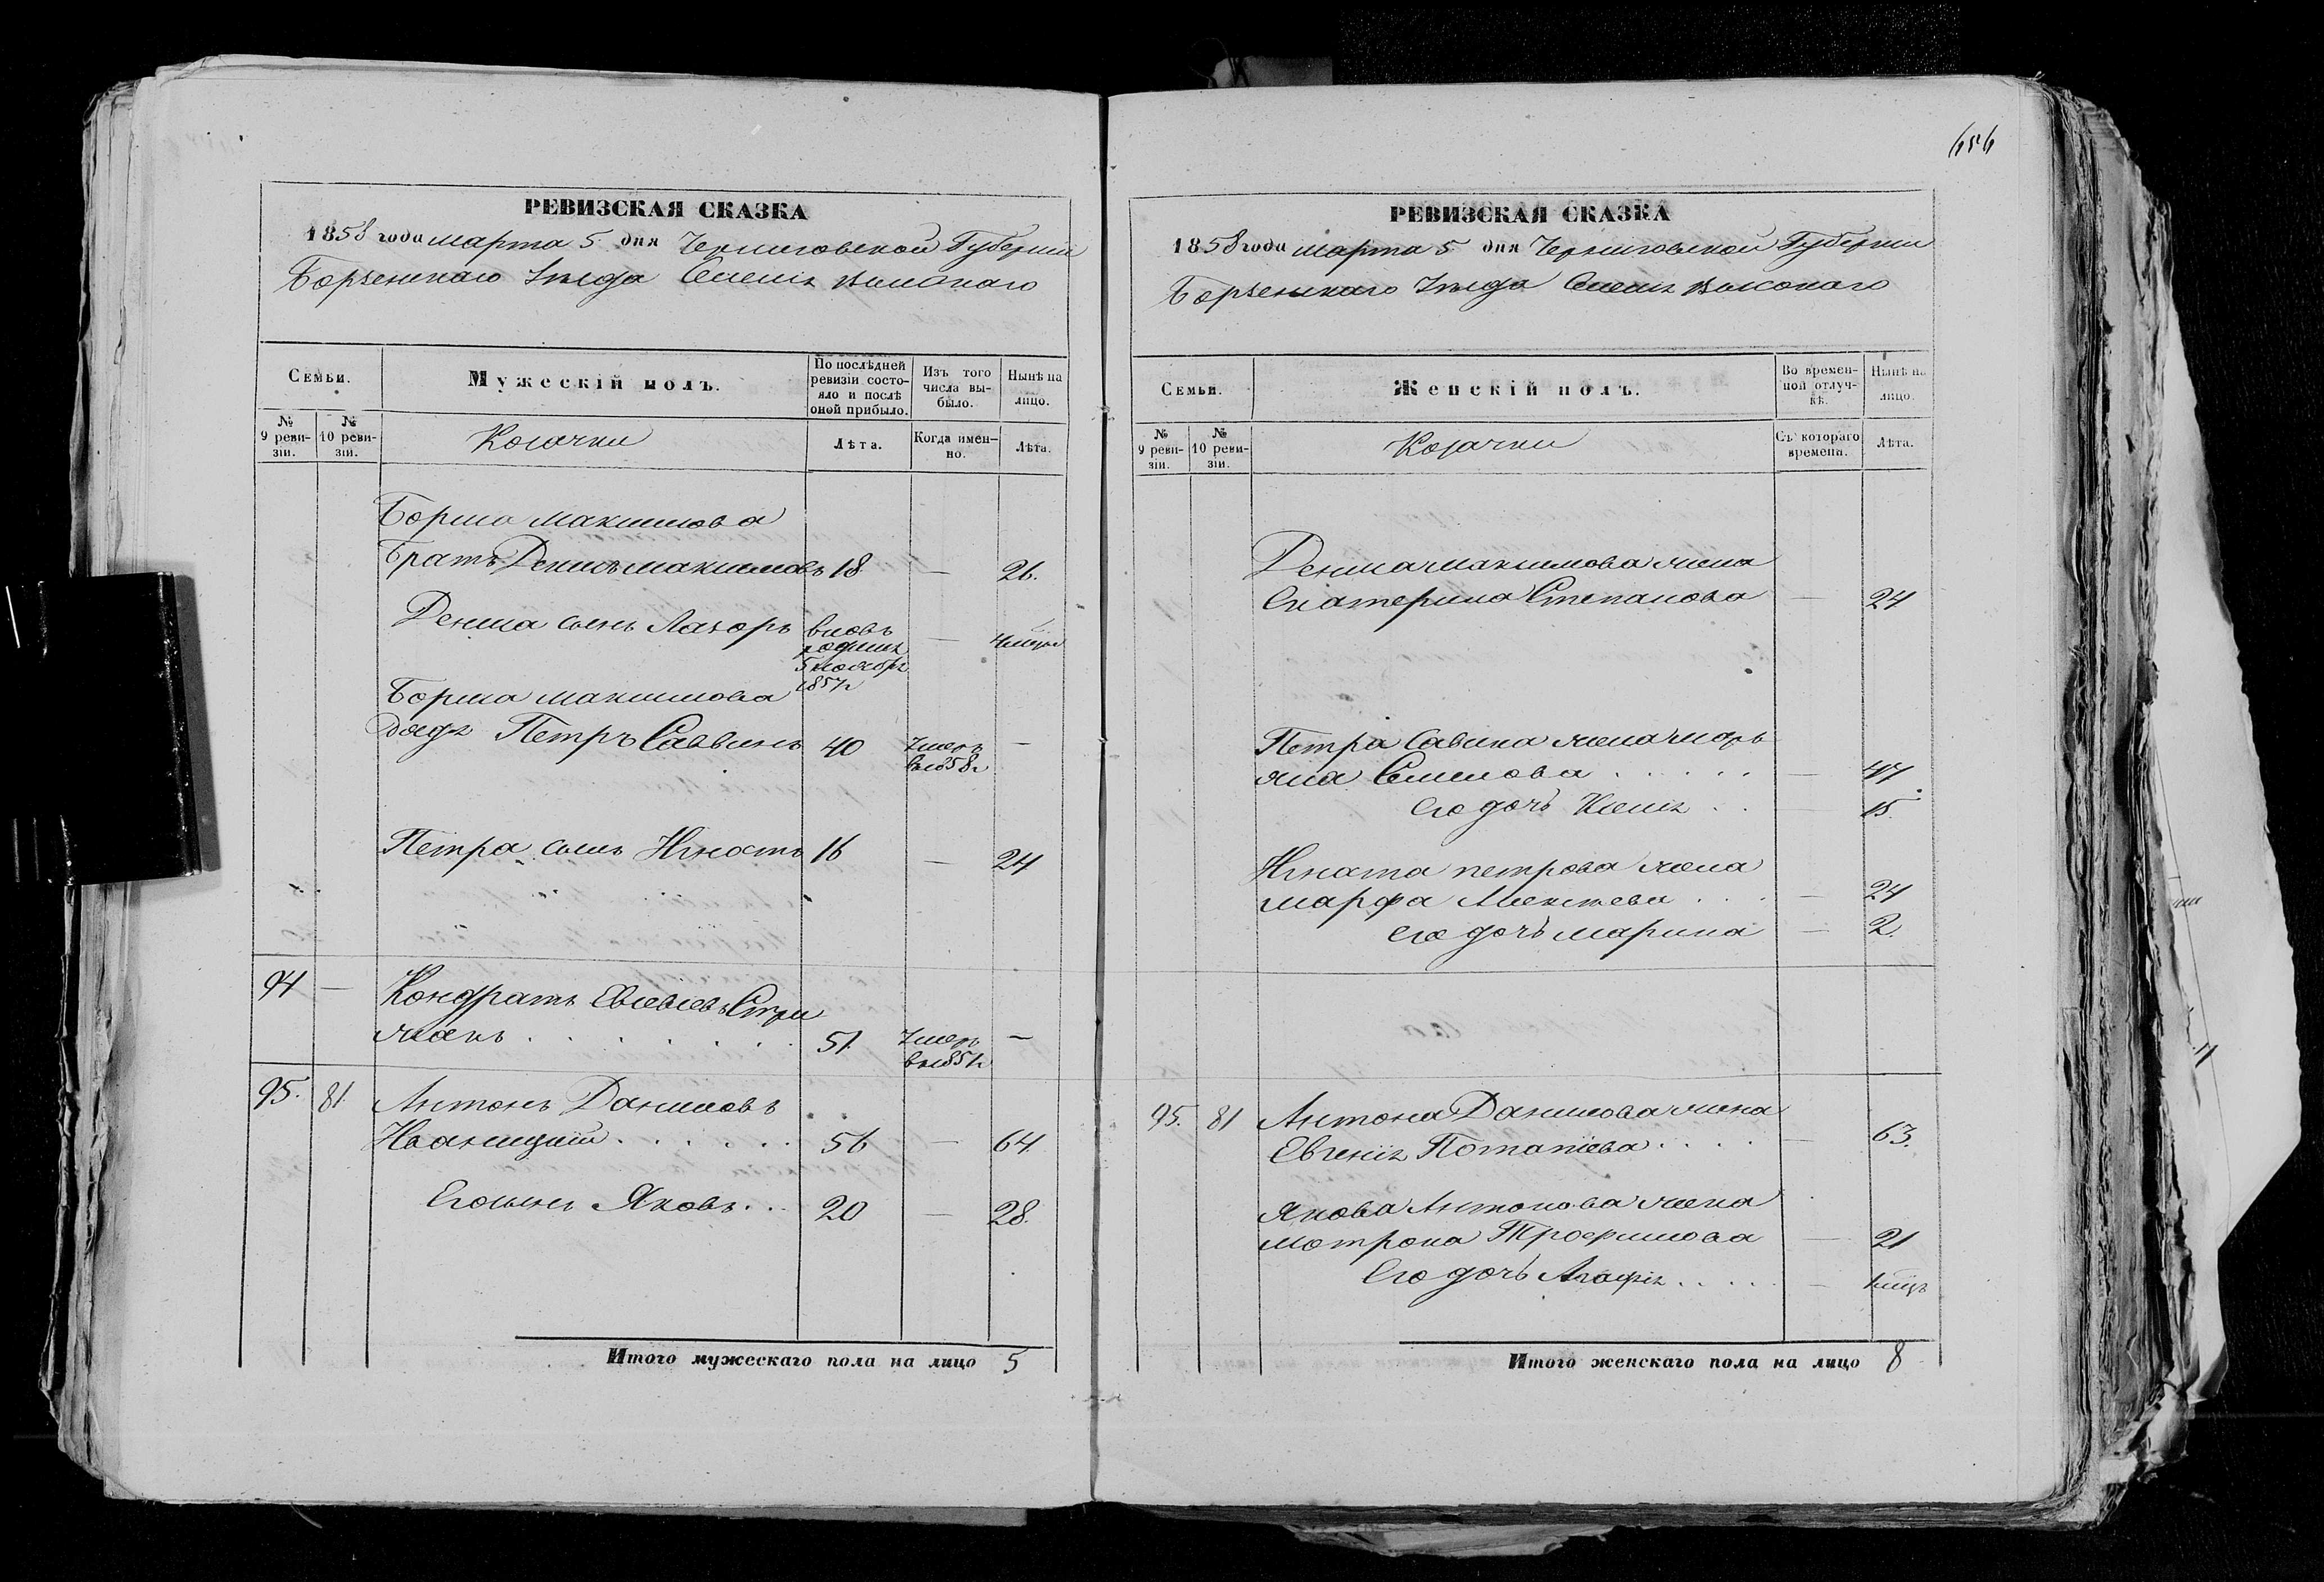 РЕВИЗСКАЯ СКАЗКА
1858 года марта 5 дня Черниговской Губернии
Борзенскаго Уезда Высокаго
Семьи.
Мужескій полъ.
По послѣдней ревизіи состояло и послѣ оной прибыло.
Изъ того числа выбыло.
Нынѣ на лицо.
№ 9 ревизіи.
№ 10 ревизіи.
Козачки
Лѣта.
Когда именно.
Лѣта.
Бориса Максимова
братъ Денисъ Максимовъ 18 — 26.
Дениса сынъ Лазорь вновь — 4 мцы
родился
5 ноября
1857г
Бориса Максимова
дядя Петръ Саввинъ 40 Умеръ —
въ 1858г
Петра сынъ Игнатъ 16 — 24
94 — Кондратъ Евсевіевъ Стри
жакъ . . . . . . . 51. Умеръ —
въ 1851г
95. 81. Антонъ Даниловъ
Иваницкій . . . . . . 56 — 64.
Его сынъ Яковъ . . . 20 — 28.
Итого мужескаго пола на лицо 5
656
РЕВИЗСКАЯ СКАЗКА
1858 года марта 5 дня Черниговской Губернии
Борзенскаго Уезда Высокаго
Семьи.
Женскій полъ.
Во временной отлучкѣ.
Нынѣ на лицо.
№ 9 ревизіи.
№ 10 ревизіи.
Козачки
Съ котораго времени.
Лѣта.
Дениса Максимова жена
Екатерина Степанова — 24
Петра Савина жена Марь
яна Семенова . . . . . — 47
Его дочь Ксенія . . — 15.
Игната Петрова жена
Марфа Алексѣева . . . — 24
его дочь Марина — 2.
95. 81 Антона Данилова жена
Евгенія Потапіева . . . . — 63.
Якова Антонова жена
Мотрона Трофимова — 21
Его дочь Агафія . . . . . — 1 мцъ
Итого женскаго пола на лицо 8